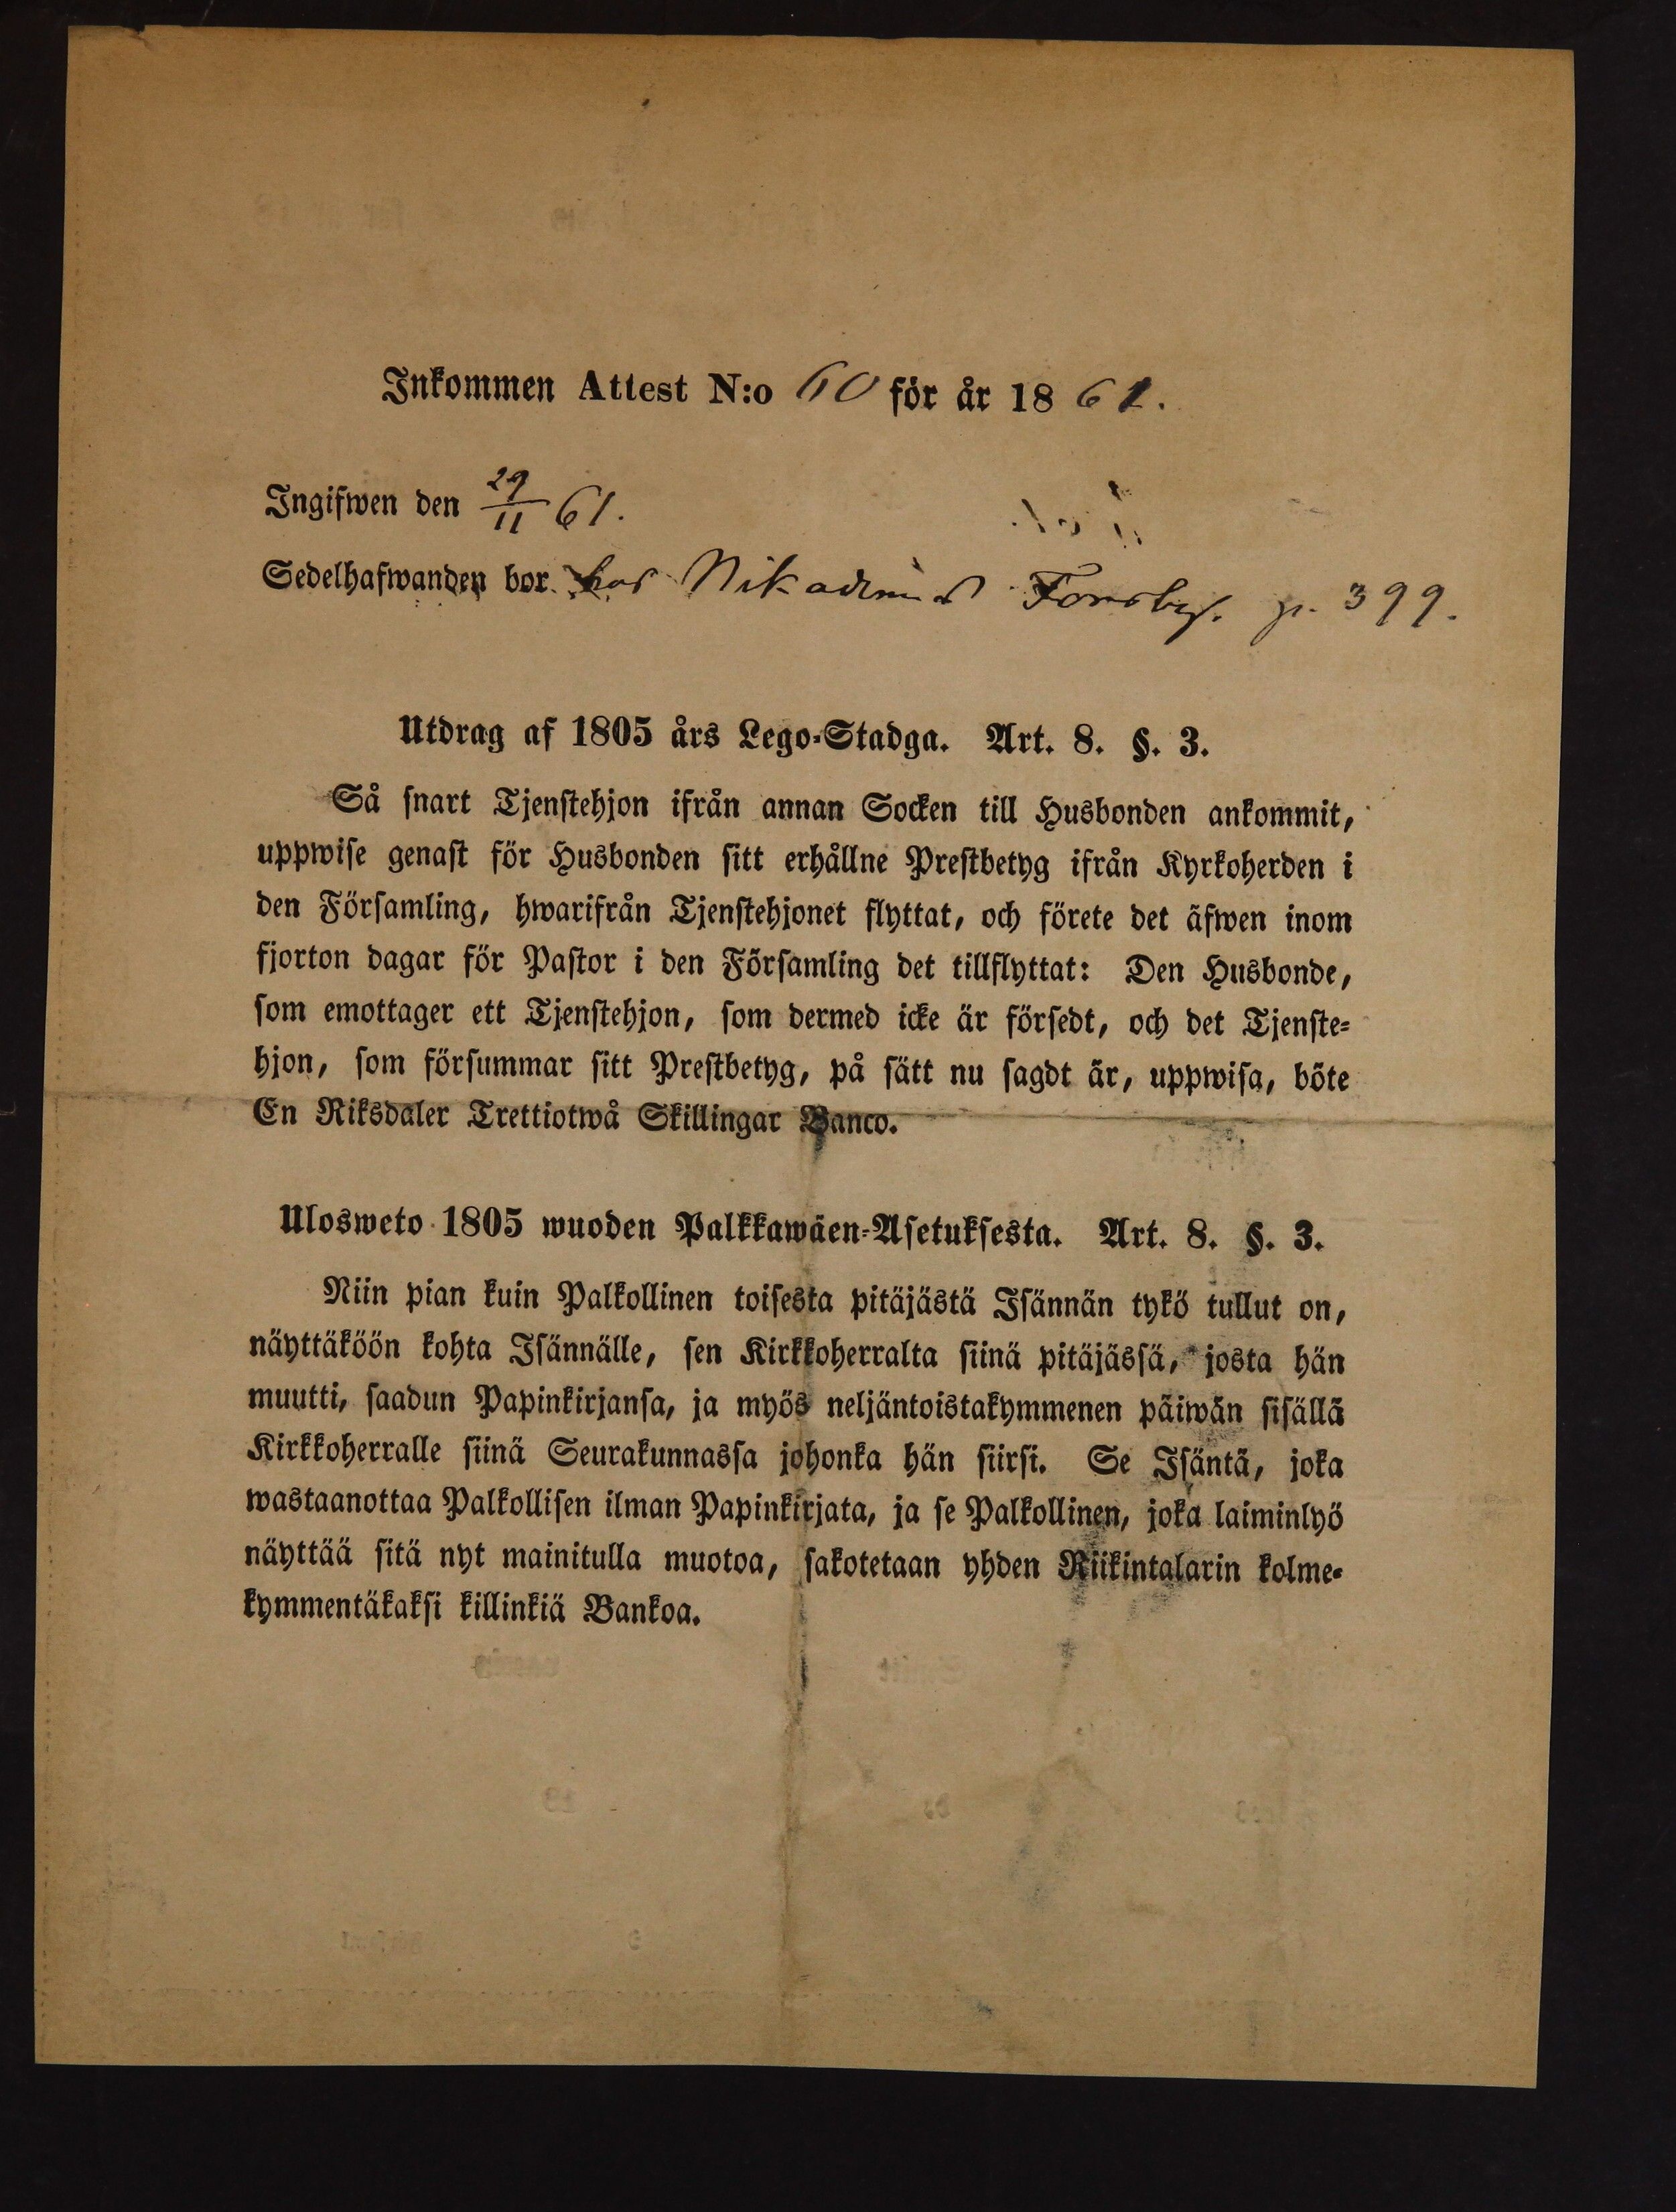 Inkommen Attest N:o 60 för år 1861.
Ingifwen den 29/11 61.
Sedelhafwanden bor hos Nikadimus Forsby. p. 399.
Utdrag af 1805 års Lego-Stadga. Art. 8. §. 3.
Så snart Tjenstehjon ifrån annan Socken till Husbonden ankommit,
uppwise genast för Husbonden sitt erhållne Prestbetyg ifrån Kyrkoherden i
den Församling, hwarifrån Tjenstehjonet flyttat, och förete det äfwen inom
fjorton dagar för Pastor i den Församling det tillflyttat: Den Husbonde,
som emottager ett Tjenstehjon, som dermed icke är försedt, och det Tjenste-
hjon, som försummar sitt Prestbetyg, på sätt nu sagdt är, uppwisa, böte
En Riksdaler Trettiotwå Skillingar Banco.
Ulosweto 1805 wuoden Palkkawäen-Asetuksesta. Art. 8. §. 3.
Niin pian kuin Palkollinen toisesta pitäjästä Isännän tykö tullut on,
näyttäköön kohta Isännälle, sen Kirkkoherralta siinä pitäjässä, josta hän
muutti, saadun Papinkirjansa, ja myös neljäntoistakymmenen päiwän sisällä
Kirkkoherralle siinä Seurakunnassa johonka hän siirsi. Se Isäntä, joka
wastaanottaa Palkollisen ilman Papinkirjata, ja se Palkollinen, joka laiminlyö
näyttää sitä nyt mainitulla muotoa, sakotetaan yhden Riikintalarin kolme-
kymmentäkaksi killinkiä Bankoa.